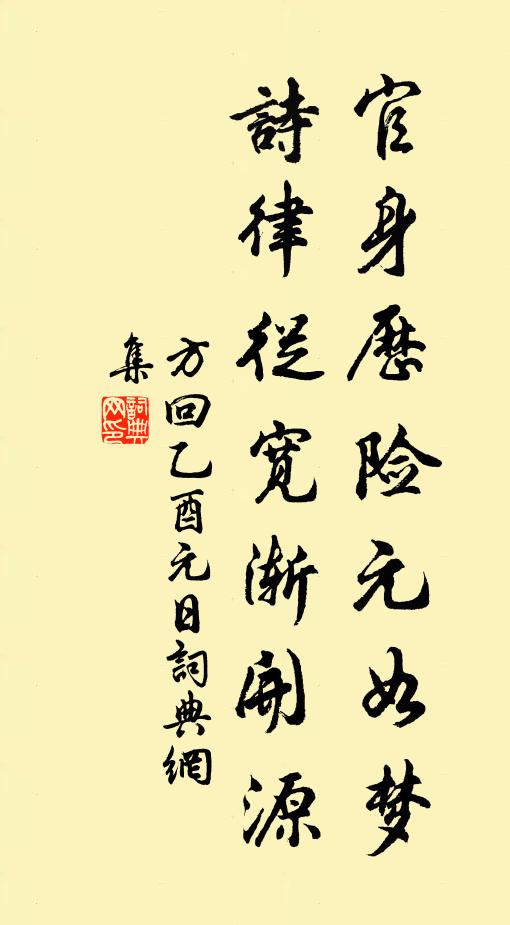 官身歷险元如梦
詩律從宽渐開源
方回乙酉元日詞典網
集
詞典网印